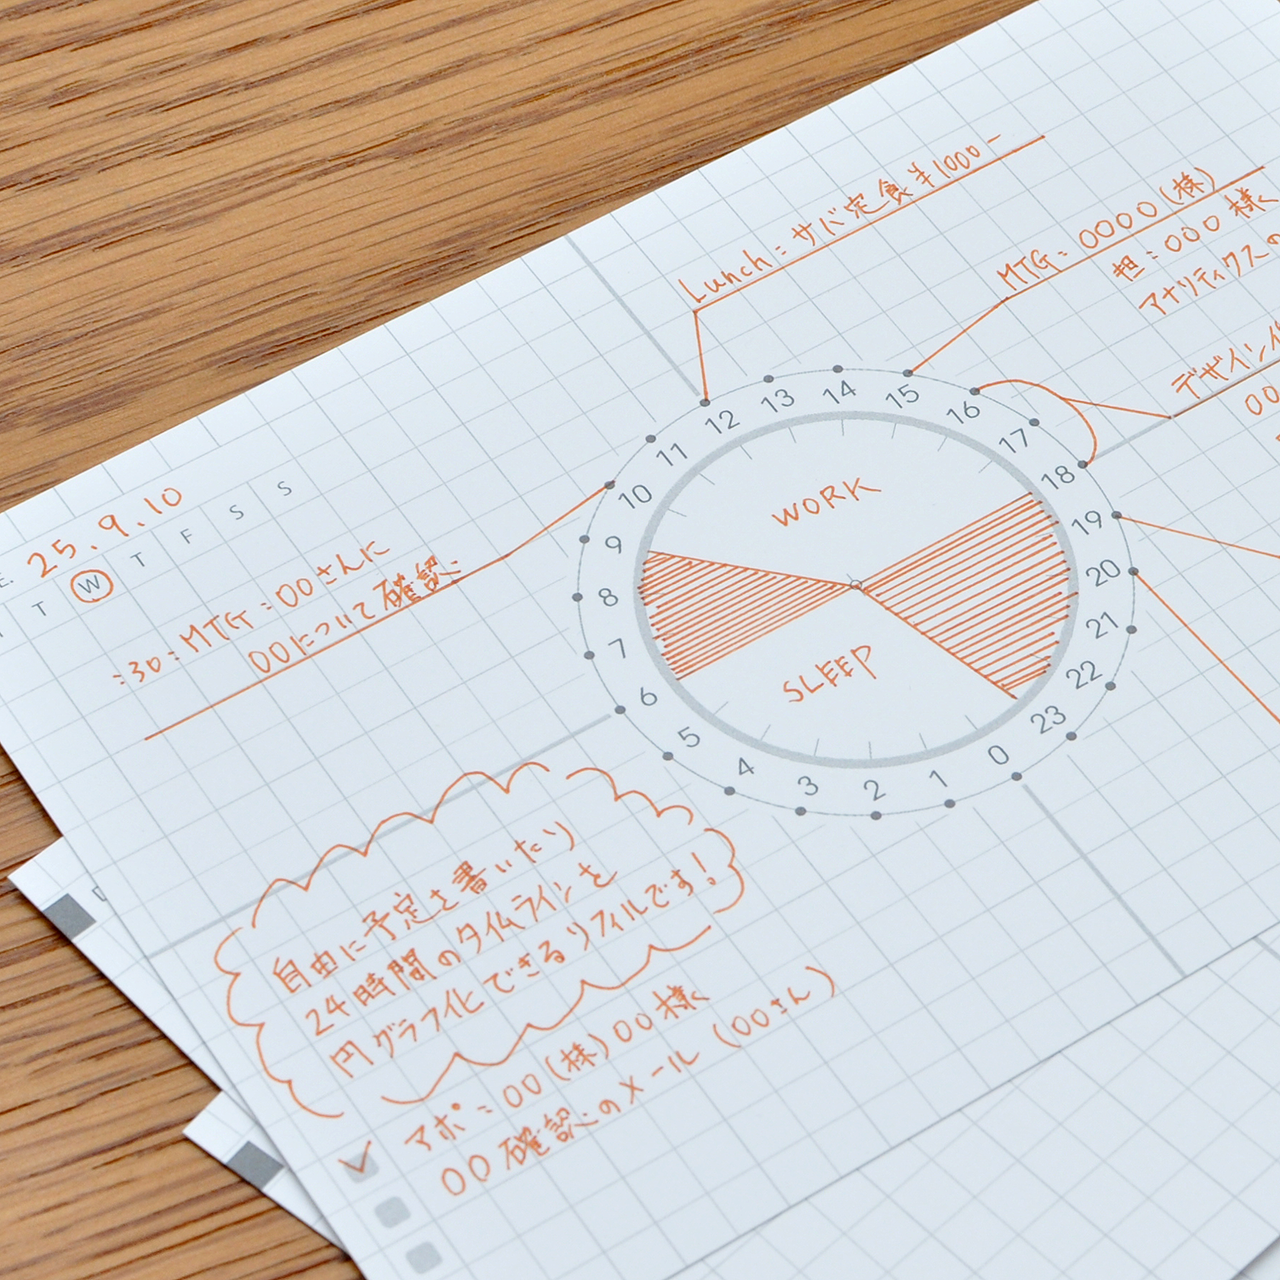 25.9.10
T W T F S S
:30:MTG:〇〇さんに
〇〇について確認
Lunch:サバ定食¥1000-
MTG:〇〇〇〇(株)
担:〇〇〇様
アナリティクスの
デザイン
〇〇
WORK
SLEEP
0
1
2
3
4
5
6
7
8
9
10
11
12
13
14
15
16
17
18
19
20
21
22
23
自由に予定を書いたり
24時間のタイムラインを
円グラフ化できるリフィルです!
アポ:〇〇(株)〇〇様
〇〇確認のメール(〇〇さん)